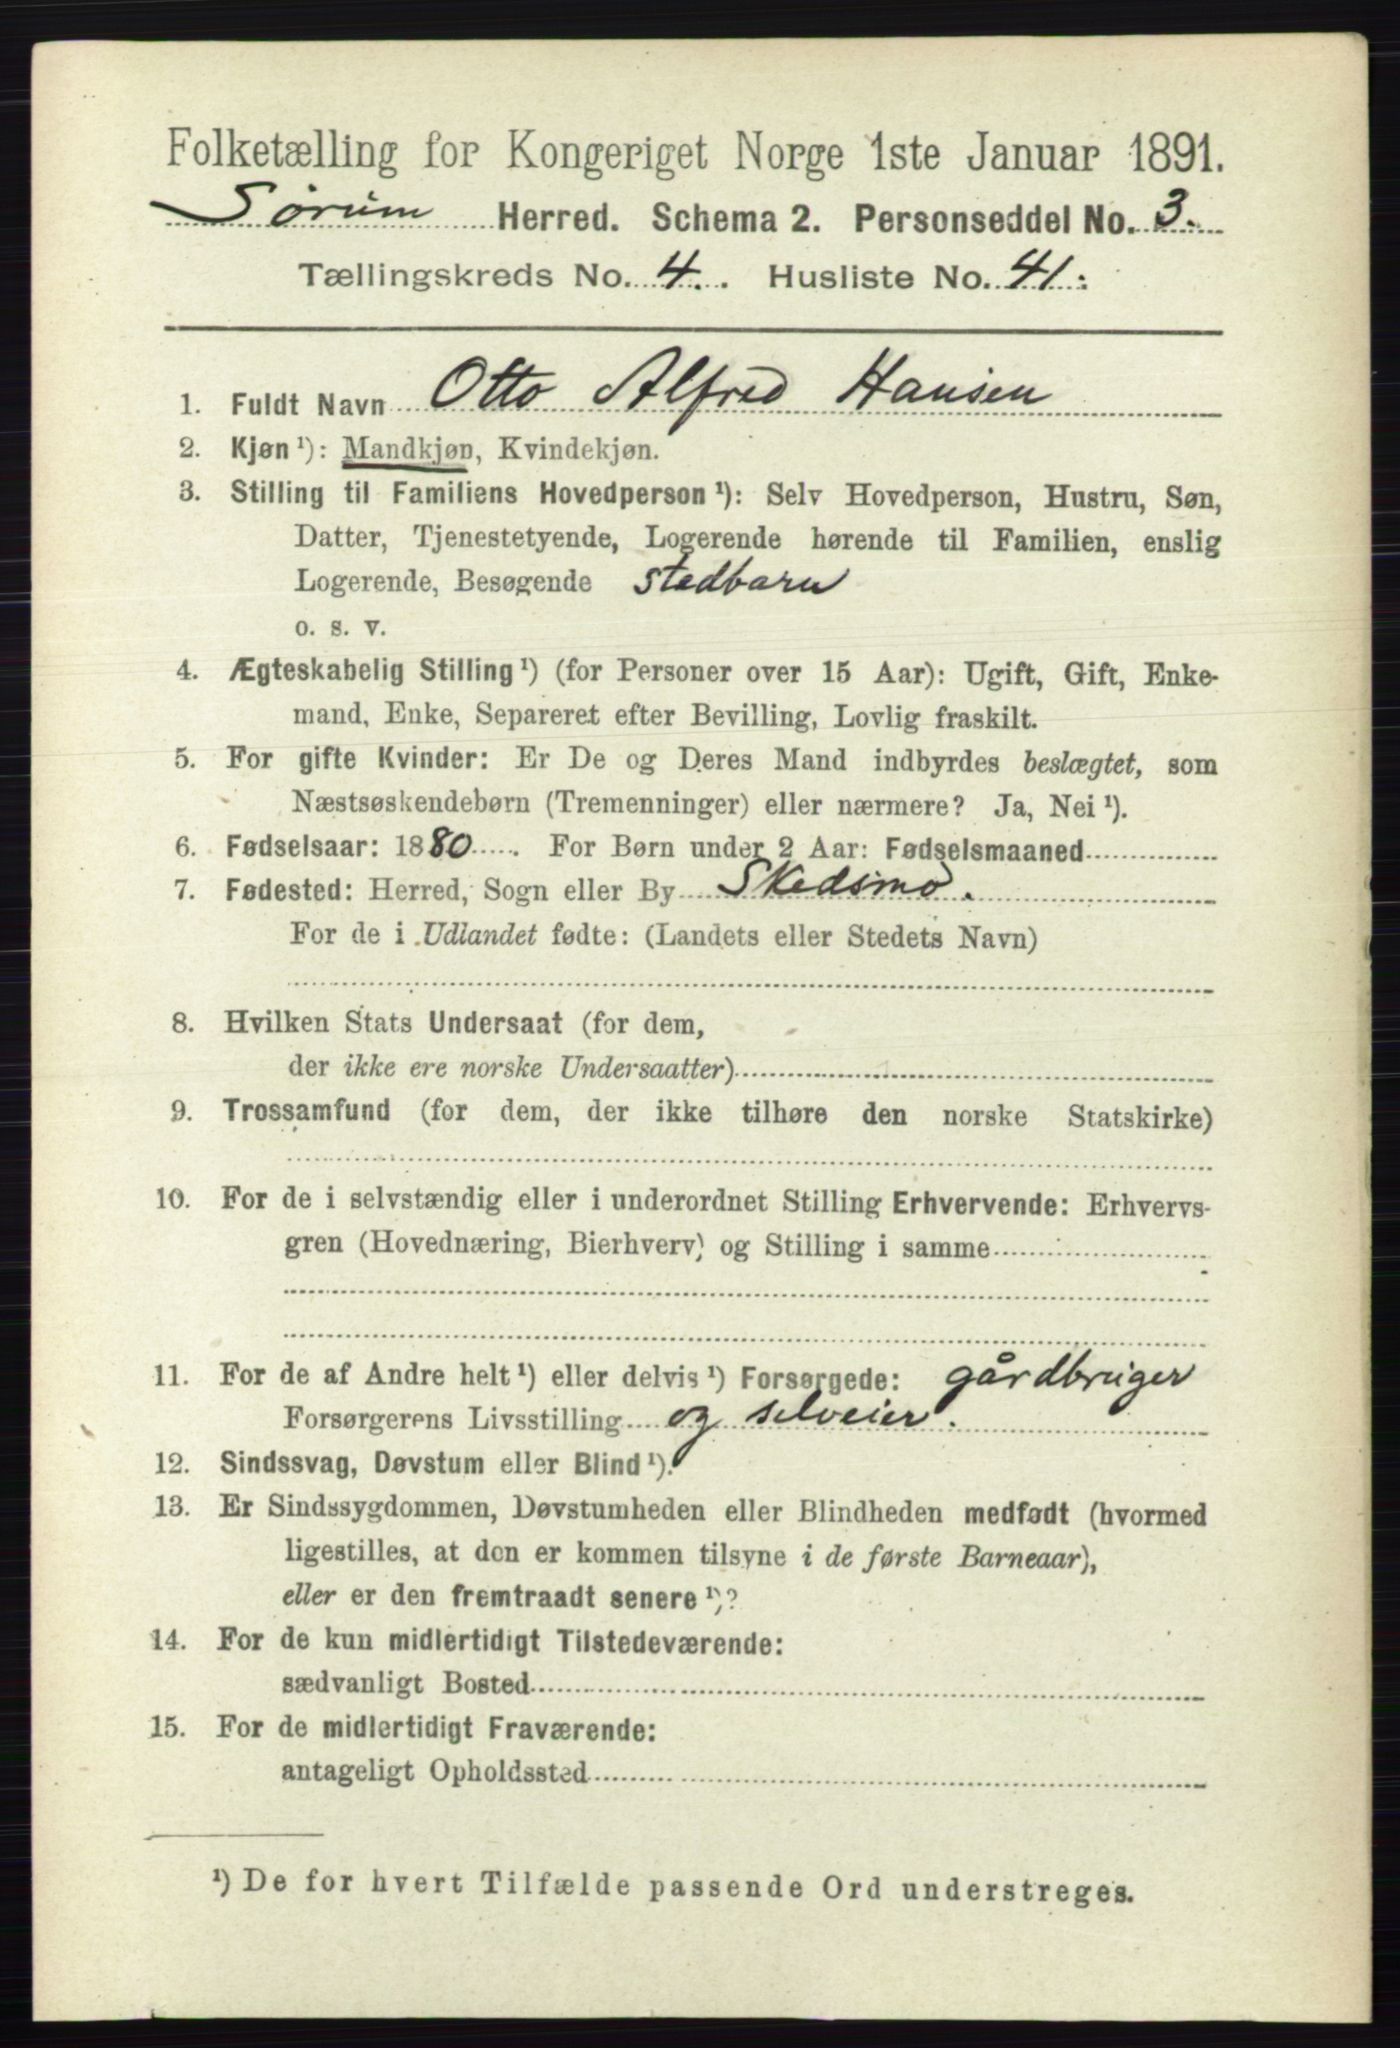 Folketælling for Kongeriget Norge 1ste Januar 1891.
Sørum Herred. Schema 2. Personseddel No. 3.
Tællingskreds No. 4. Husliste No. 41.
1. Fuldt Navn Otto Alfred Hansen
2. Kjøn¹): Mandkjøn, Kvindekjøn.
3. Stilling til Familiens Hovedperson¹): Selv Hovedperson, Hustru, Søn,
Datter, Tjenestetyende, Logerende hørende til Familien, enslig
Logerende, Besøgende stedbarn
o. s. v.
4. Ægteskabelig Stilling¹) (for Personer over 15 Aar): Ugift, Gift, Enke-
mand, Enke, Separeret efter Bevilling, Lovlig fraskilt.
5. For gifte Kvinder: Er De og Deres Mand indbyrdes beslægtet, som
Næstsøskendebørn (Tremenninger) eller nærmere? Ja, Nei¹).
6. Fødselsaar: 1880. For Børn under 2 Aar: Fødselsmaaned
7. Fødested: Herred, Sogn eller By Skedsmo.
For de i Udlandet fødte: (Landets eller Stedets Navn)
8. Hvilken Stats Undersaat (for dem,
der ikke ere norske Undersaatter)
9. Trossamfund (for dem, der ikke tilhøre den norske Statskirke)
10. For de i selvstændig eller i underordnet Stilling Erhvervende: Erhvervs-
gren (Hovednæring, Bierhverv) og Stilling i samme
11. For de af Andre helt¹) eller delvis¹) Forsørgede: gårdbruger
Forsørgerens Livsstilling og selveier.
12. Sindssvag, Døvstum eller Blind¹).
13. Er Sindssygdommen, Døvstumheden eller Blindheden medfødt (hvormed
ligestilles, at den er kommen tilsyne i de første Barneaar),
eller er den fremtraadt senere¹)?
14. For de kun midlertidigt Tilstedeværende:
sædvanligt Bosted
15. For de midlertidigt Fraværende:
antageligt Opholdssted
¹) De for hvert Tilfælde passende Ord understreges.